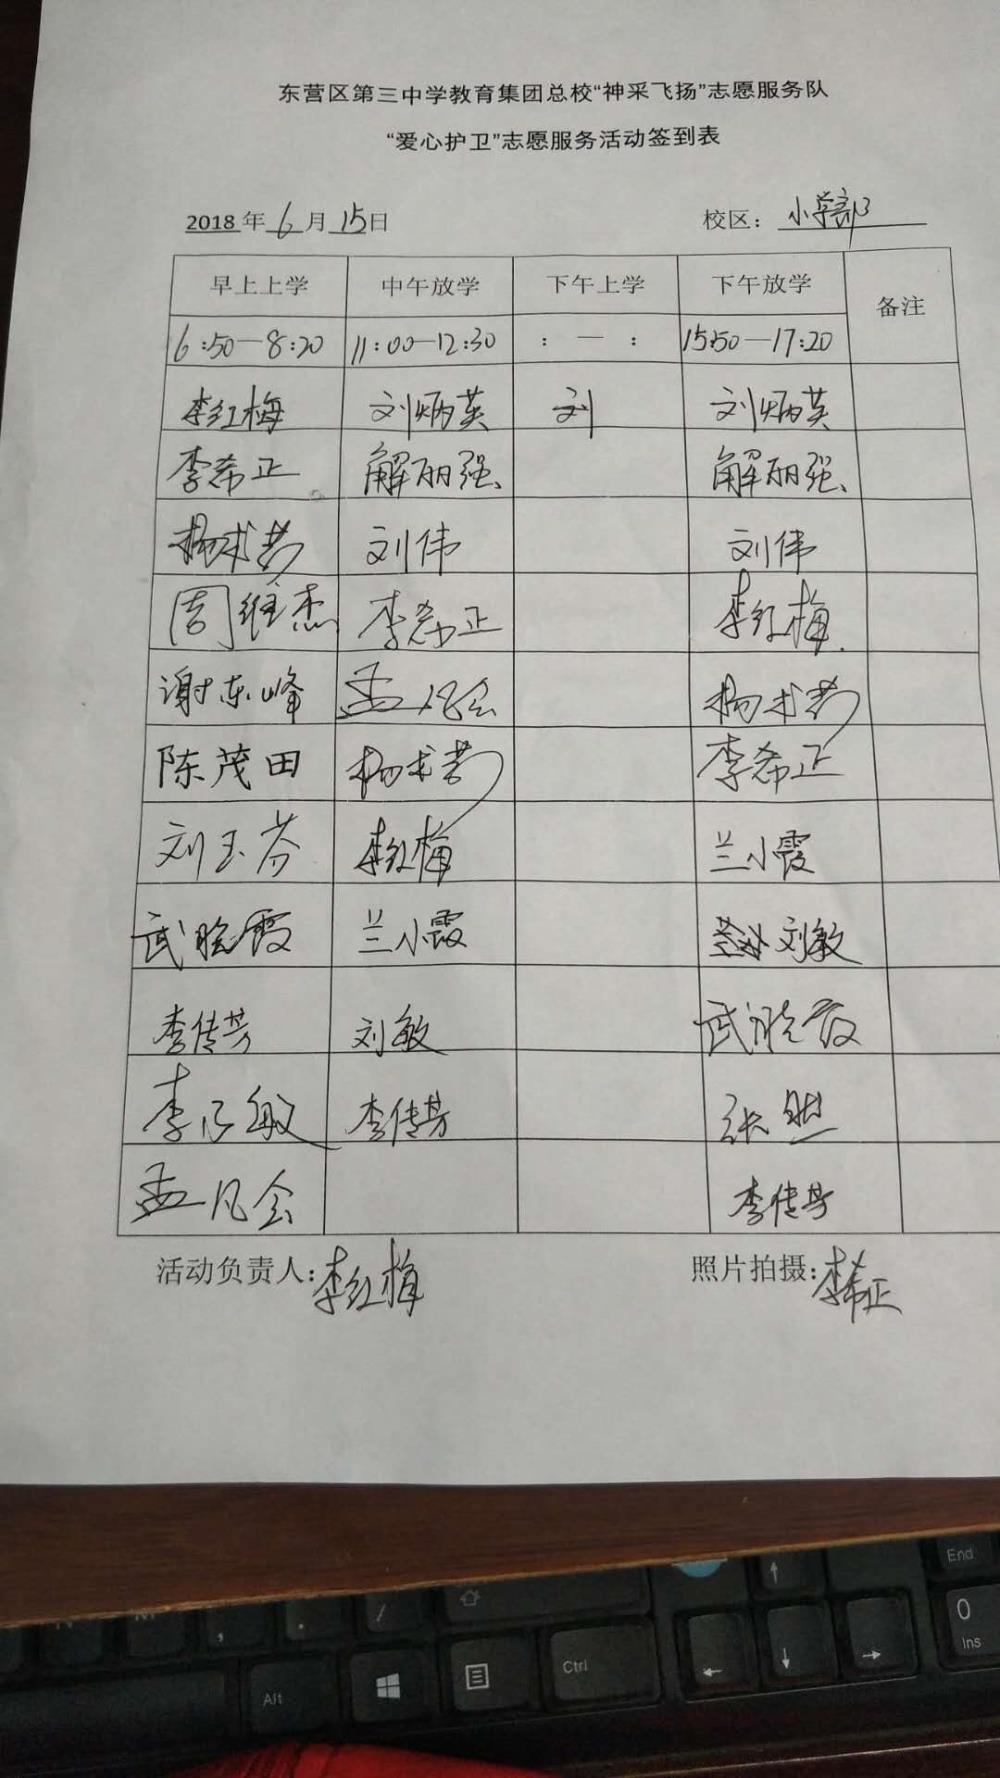 东营区第三中学教育集团总校“神采飞扬”志愿服务队
“爱心护卫”志愿服务活动签到表
2018年6月15日 校区：小学部
早上上学 中午放学 下午上学 下午放学 备注
6:50—8:20 11:00—12:30 : — : 15:50—17:20
李红梅 刘炳英 刘 刘炳英
李希正 解丽强 解丽强
刘伟 刘伟
周维杰 李希正 李红梅
谢东峰 孟凡会
陈茂田 李希正
刘玉芬 李红梅 兰小霞
武晓霞 兰小霞 刘敏
李传芳 刘敏 武晓霞
李乃敏 李传芳 张
孟凡会 李传芳
活动负责人：李红梅 照片拍摄：李希正
End
0
Ins
Alt
Ctrl